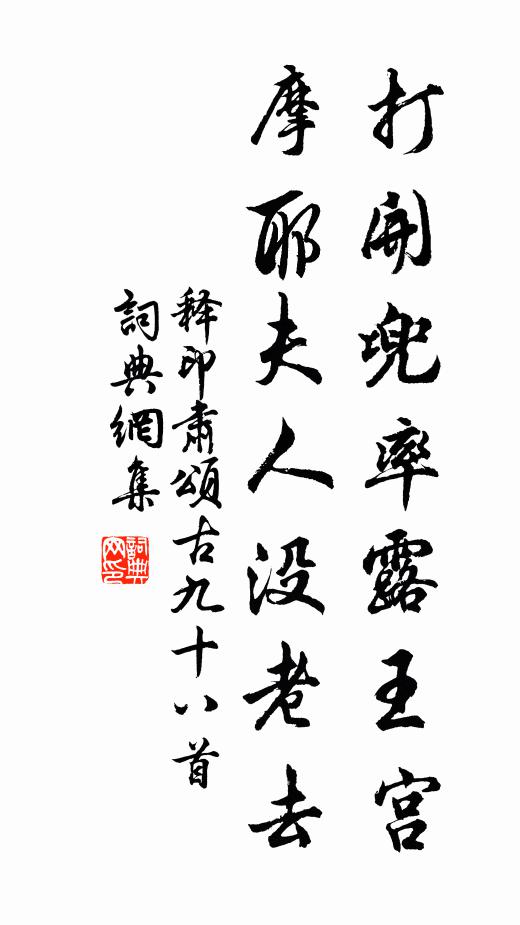 打開兜率露王宫
摩耶夫人没老去
释印肅頌古九十八首
詞典網集
詞典网印